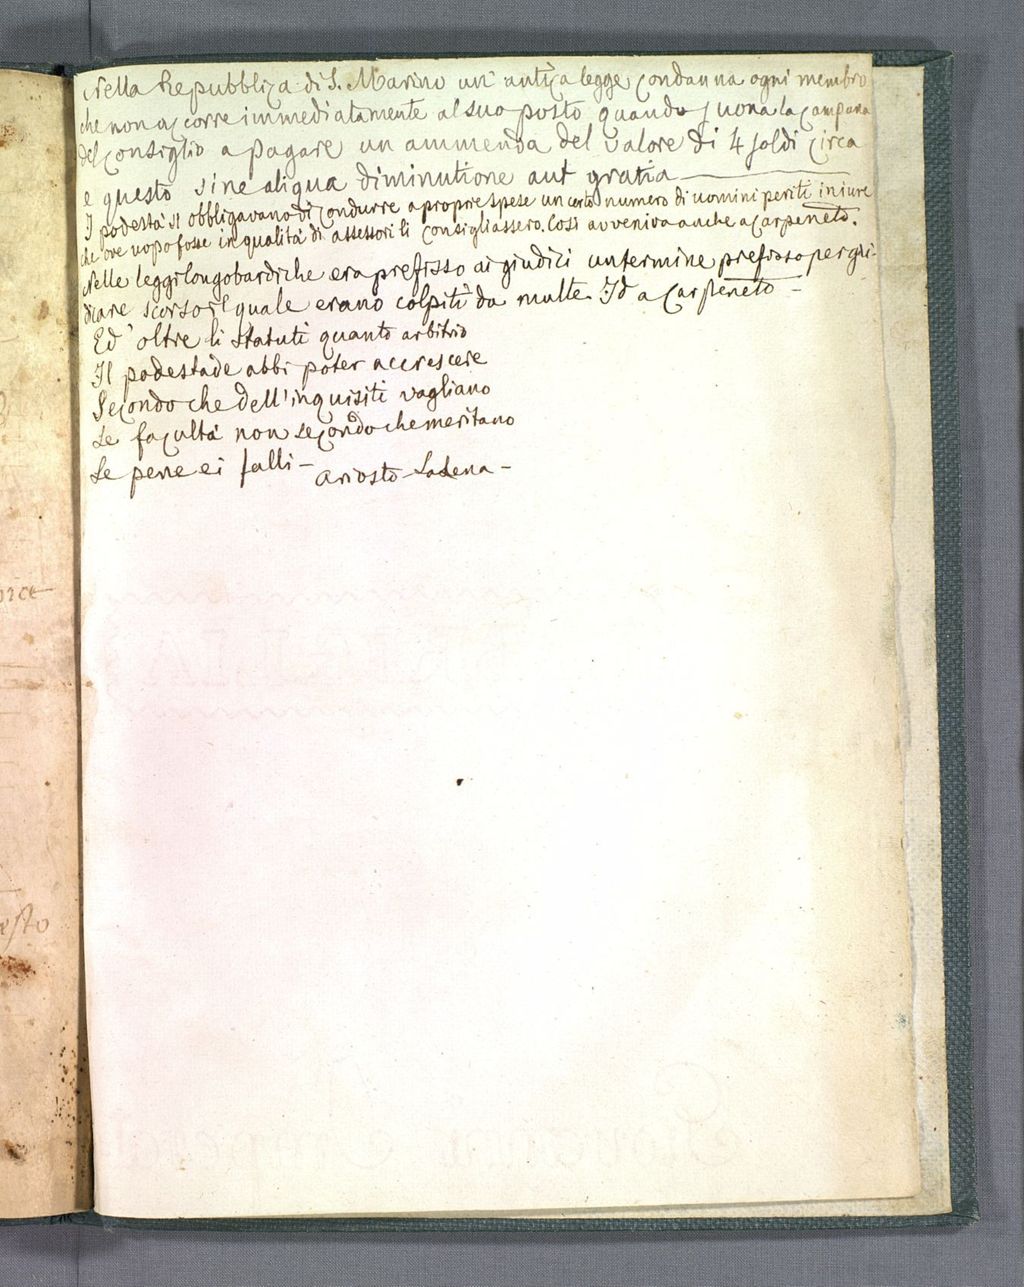 Nella Repubblica di S. Marino un' antica legge condanna ogni membro
che non accorre immediatamente al suo posto quando suona la campana
del consiglio a pagare un ammenda del valore di 4 soldi circa
e questo sine aliqua diminutione aut gratia
I podestà si obbligavano di condurre a proprie spese un certo numero di uomini periti in iure
che ove uopo fosse in qualità di assessori li consigliassero. Così avveniva anche a Carpeneto.
Nelle leggi longobardiche era prefisso ai giudici un termine prefisso per giu-
dicare scorso il quale erano colpiti da multe. Id a Carpeneto -
Ed oltre li statuti quanto arbitrio
Il podestade abbi poter accrescere
Secondo che dell' inquisiti vagliano
Le facultà non secondo che meritano
Le pene ei falli -
Ariosto - La Lena -
orce
esto